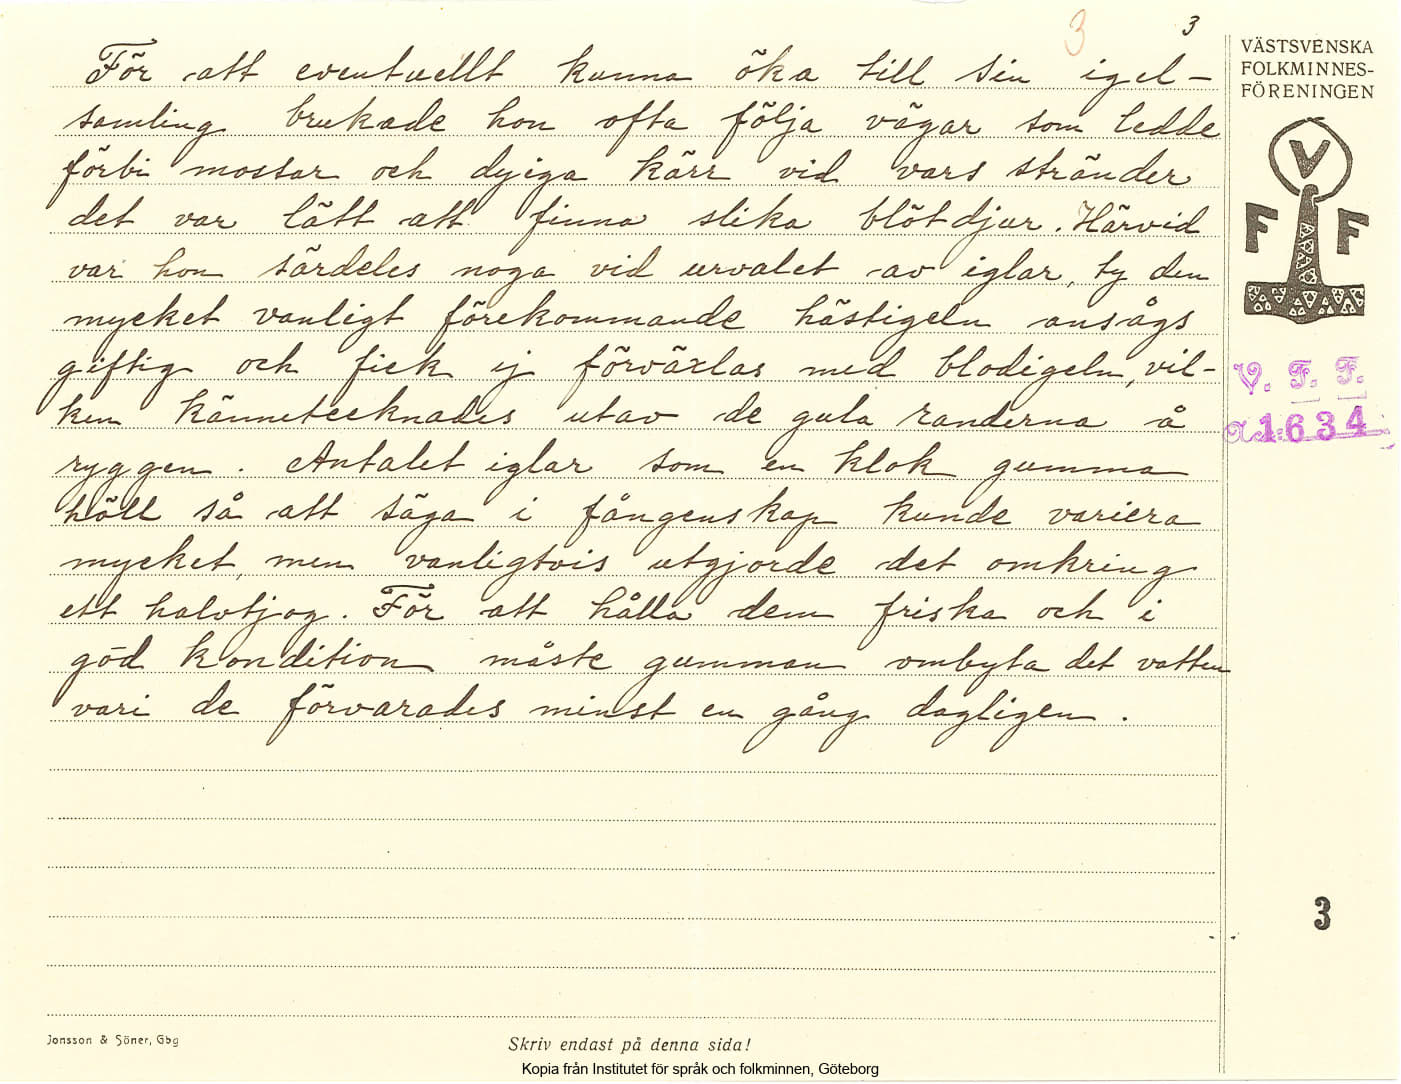 3
3
För att eventuellt kunna öka till sin igel-
samling brukade hon ofta följa vägar som ledde
förbi mossar och dyiga kärr vid vars stränder
det var lätt att finna slika blötdjur. Härvid
var hon särdeles noga vid urvalet av iglar, ty den
mycket vanligt förekommande hästigeln ansågs
giftig och fick ej förväxlas med blodigeln, vil-
ken kännetecknades utav de gula randerna å
ryggen. Antalet iglar som en klok gumma
höll så att säga i fångenskap kunde variera
mycket, men vanligtvis utgjorde det omkring
ett halvtjog. För att hålla dem friska och i
god kondition måste gumman ombyta det vatten
vari de förvarades minst en gång dagligen.
VÄSTSVENSKA
FOLKMINNES-
FÖRENINGEN
V
F F
V. F. F.
1634
3
Jonsson & Söner, Gbg
Skriv endast på denna sida!
Kopia från Institutet för språk och folkminnen, Göteborg